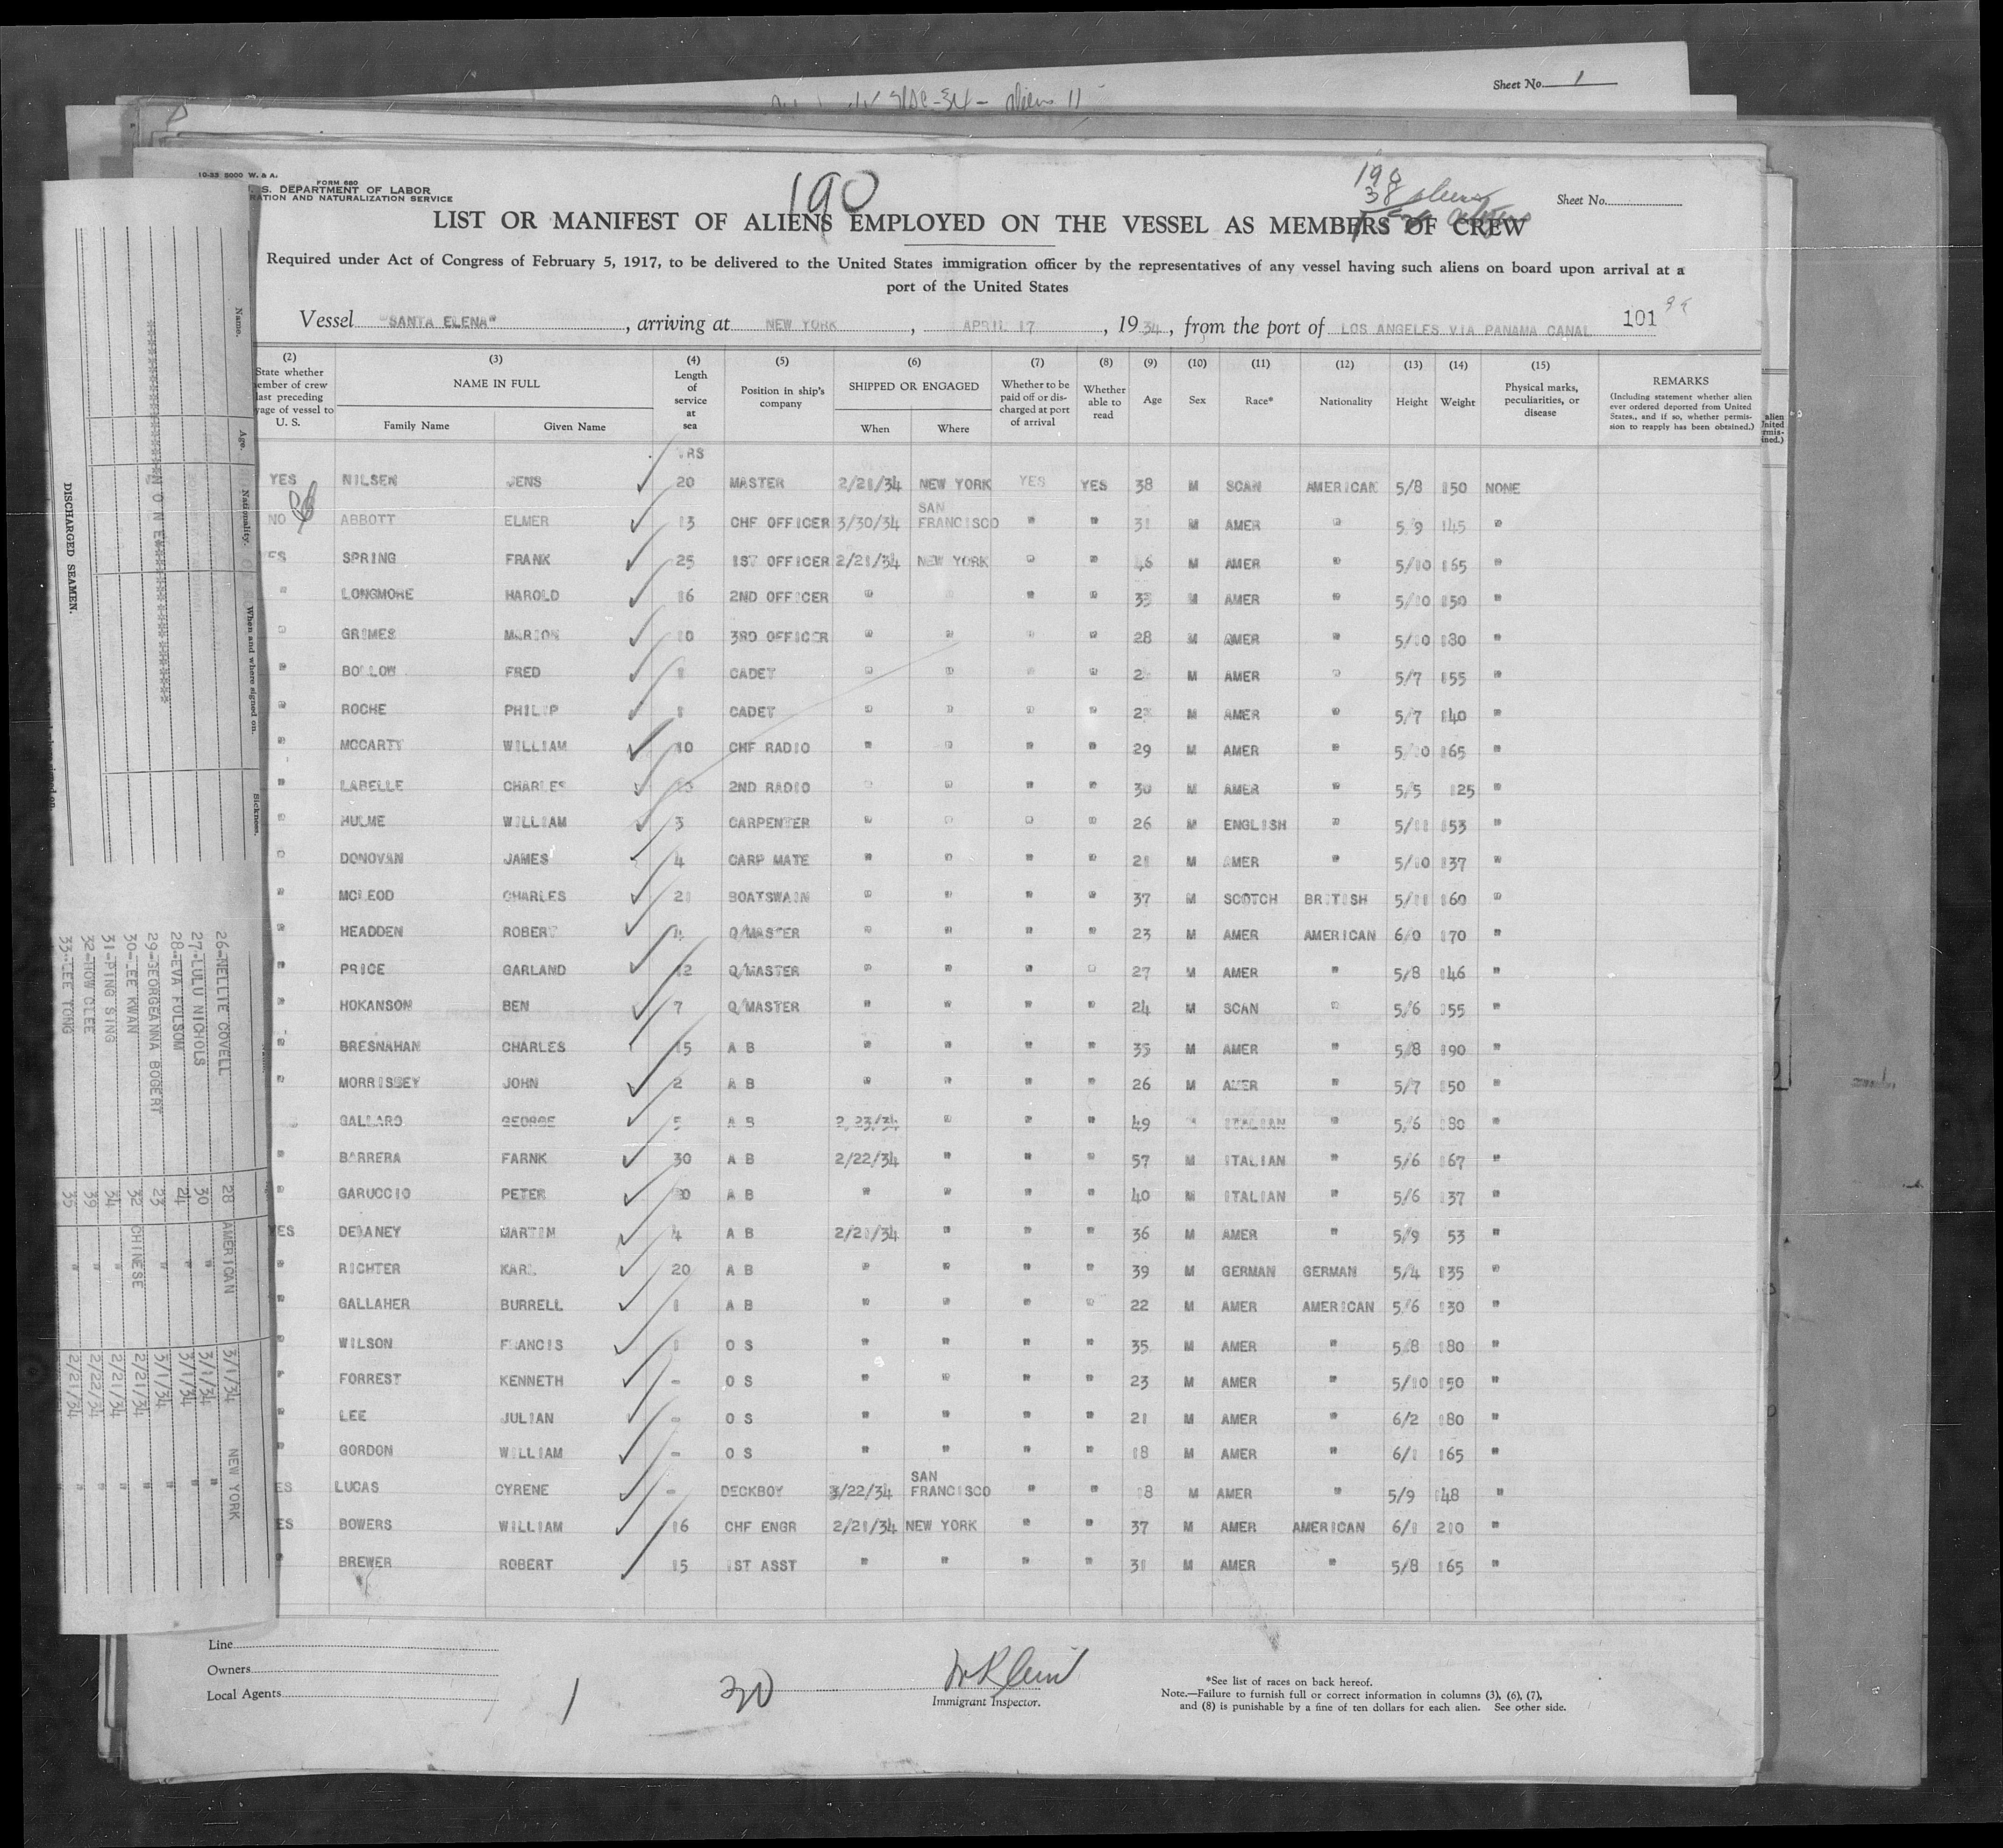 Sheet No. 1
aliens 11
10-33 5000 W. & A.
FORM 680
S. DEPARTMENT OF LABOR
RATION AND NATURALIZATION SERVICE
190
190
38 aliens
Sheet No.
LIST OR MANIFEST OF ALIENS EMPLOYED ON THE VESSEL AS MEMBERS OF CREW
Required under Act of Congress of February 5, 1917, to be delivered to the United States immigration officer by the representatives of any vessel having such aliens on board upon arrival at a
port of the United States
Vessel "SANTA ELENA", arriving at NEW YORK, APRIL 17, 1934, from the port of LOS ANGELES VIA PANAMA CANAL 101
(2) State whether member of crew last preceding voyage of vessel to U. S. (3) NAME IN FULL Family Name Given Name (4) Length of service at sea (5) Position in ship's company (6) SHIPPED OR ENGAGED When Where (7) Whether to be paid off or discharged at port of arrival (8) Whether able to read (9) Age (10) Sex (11) Race* (12) Nationality (13) Height (14) Weight (15) Physical marks, peculiarities, or disease REMARKS (Including statement whether alien ever ordered deported from United States, and if so, whether permission to reapply has been obtained.)
YRS
YES NILSEN JENS 20 MASTER 2/21/34 NEW YORK YES YES 38 M SCAN AMERICAN 5/8 150 NONE
NO ABBOTT ELMER 13 CHF OFFICER 3/30/34 SAN FRANCISCO " " 31 M AMER " 5/9 145 "
ES SPRING FRANK 25 1ST OFFICER 2/21/34 NEW YORK " " 46 M AMER " 5/10 165 "
" LONGMORE HAROLD 16 2ND OFFICER " " " 35 M AMER " 5/10 150 "
" GRIMES MARION 10 3RD OFFICER " " " " 28 M AMER " 5/10 180 "
" BOLLOW FRED 1 CADET " " " " M AMER " 5/7 155 "
" ROCHE PHILIP 1 CADET " " " " M AMER " 5/7 140 "
" MCCARTY WILLIAM 10 CHF RADIO " " " " 29 M AMER " 5/10 165 "
" LABELLE CHARLES 2ND RADIO " " " " 30 M AMER " 5/5 125 "
" HULME WILLIAM 3 CARPENTER " " " " 26 M ENGLISH " 5/11 153 "
" DONOVAN JAMES 4 CARP MATE " " " " 21 M AMER " 5/10 137 "
" MCLEOD CHARLES 21 BOATSWAIN " " " " 37 M SCOTCH BRITISH 5/11 160 "
" HEADDEN ROBERT 4 Q/MASTER " " " " 23 M AMER AMERICAN 6/0 170 "
" PRICE GARLAND 12 Q/MASTER " " " " 27 M AMER " 5/8 146 "
" HOKANSOM BEN 7 Q/MASTER " " " " 24 M SCAN " 5/6 155 "
" BRESNAHAN CHARLES 15 A B " " " " 35 M AMER " 5/8 190 "
" MORRISSEY JOHN 2 A B " " " " 26 M AMER " 5/7 150 "
GALLARO GEORGE 5 A B 2/23/34 " " " 49 M ITALIAN " 5/6 180 "
" BARRERA FARNK 30 A B 2/22/34 " " " 57 M ITALIAN " 5/6 167 "
" GARUCCIO PETER A B " " " " 40 M ITALIAN " 5/6 137 "
YES DELANEY MARTIN 4 A B 2/21/34 " " " 36 M AMER " 5/9 53 "
" RICHTER KARL 20 A B " " " " 39 M GERMAN GERMAN 5/4 135 "
" GALLAHER BURRELL 1 A B " " " " 22 M AMER AMERICAN 5/6 130 "
" WILSON FRANCIS 1 O S " " " " 35 M AMER " 5/8 180 "
" FORREST KENNETH - O S " " " " 23 M AMER " 5/10 150 "
" LEE JULIAN - O S " " " " 21 M AMER " 6/2 180 "
" GORDON WILLIAM - O S " " " " 18 M AMER " 6/1 165 "
ES LUCAS CYRENE - DECKBOY 3/22/34 SAN FRANCISCO " " 18 M AMER " 5/9 148 "
ES BOWERS WILLIAM 16 CHF ENGR 2/21/34 NEW YORK " " 37 M AMER AMERICAN 6/1 210 "
" BREWER ROBERT 15 1ST ASST " " " " 31 M AMER " 5/8 165 "
Line
Owners
Local Agents
1
30
Immigrant Inspector.
*See list of races on back hereof.
Note.—Failure to furnish full or correct information in columns (3), (6), (7),
and (8) is punishable by a fine of ten dollars for each alien. See other side.
DISCHARGED SEAMEN.
Name. Age. Nationality. When and where signed on. Sickness.
NONE
26-NELLIE COVELL 28 AMERICAN 3/1/34 NEW YORK
27-LULU NICHOLS 30 " 3/1/34 "
28-EVA FOLSOM 24 " 3/1/34 "
29-GEORGEANNA BOGERT 23 " 3/1/34 "
30-LEE KWAN 32 CHINESE 2/21/34 "
31-PING SING 34 " 2/21/34 "
32-HOW CLEE 39 " 2/22/34 "
33-LEE TONG 35 " 2/21/34 "